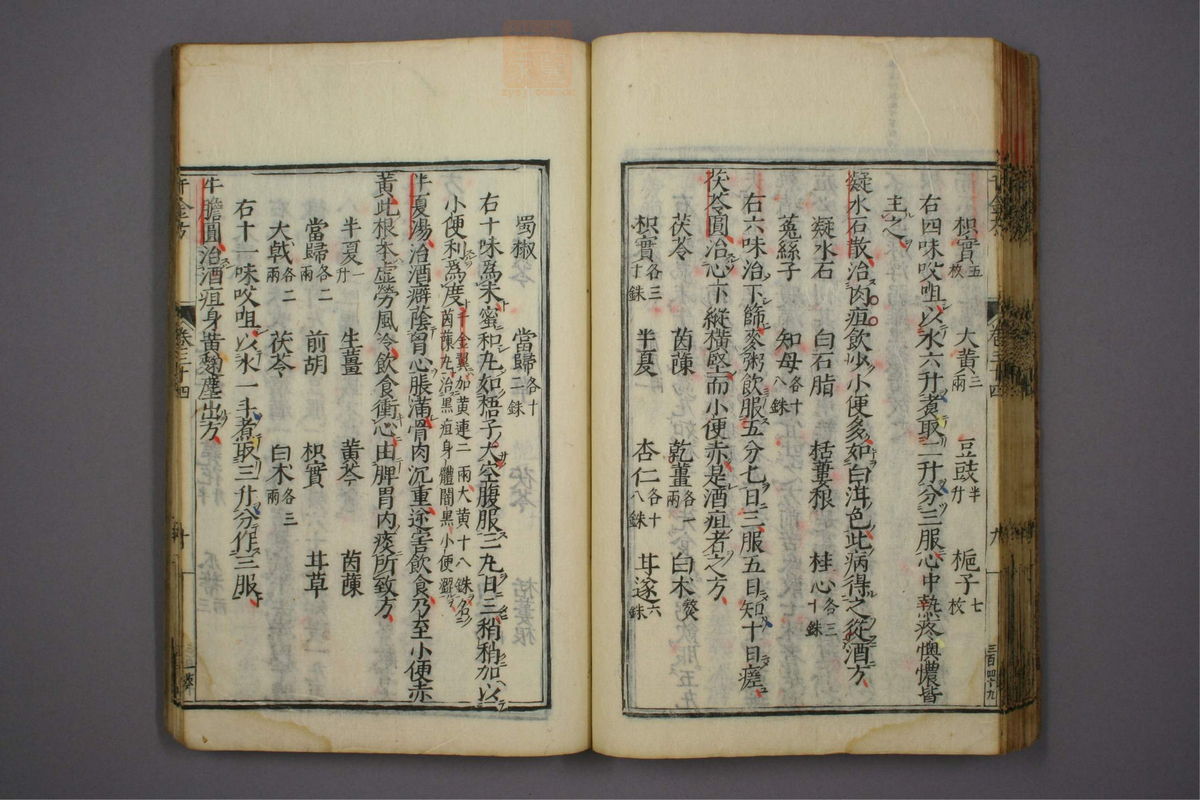 枳實五枚 大黃三兩 豆豉半升 梔子七枚
右四味㕮咀以水六升煮取二升分三服心中熱疼懊憹皆
主之
凝水石散治肉疸飲少小便多如白泔色此病得之從酒方
凝水石 白石脂 栝蔞根 桂心各三十銖
菟絲子 知母各十八銖
右六味治下篩麥粥飲服五分七日三服五日知十日瘥
茯苓圓治心下縱橫堅而小便赤是酒疸者之方
茯苓 茵蔯 乾薑各一兩 白朮熬
枳實各三十銖 半夏 杏仁各十八銖 耳遂六銖
千金方 卷三十四 九 三百四十九
蜀椒 當歸各十二銖
右十味為末蜜和丸如梧子大空腹服三丸日三稍稍加以
小便利為度千金翼加黃連二兩大黃十八銖名茵蔯丸治黑疸身體闇黑小便澀
半夏湯治酒癖蔭胷心脹滿骨肉沉重逆害飲食乃至小便赤
黃此根本虛勞風冷飲食衝心由脾胃內痰所致方
半夏一升 生薑 黃芩 茵蔯
當歸各二兩 前胡 枳實 耳草
大戟各二兩 茯苓 白朮各三兩
右十一味㕮咀以水一斗煮取三升分作三服
牛膽圓治酒疸身黃麴塵出方
千金方 卷三十四 十